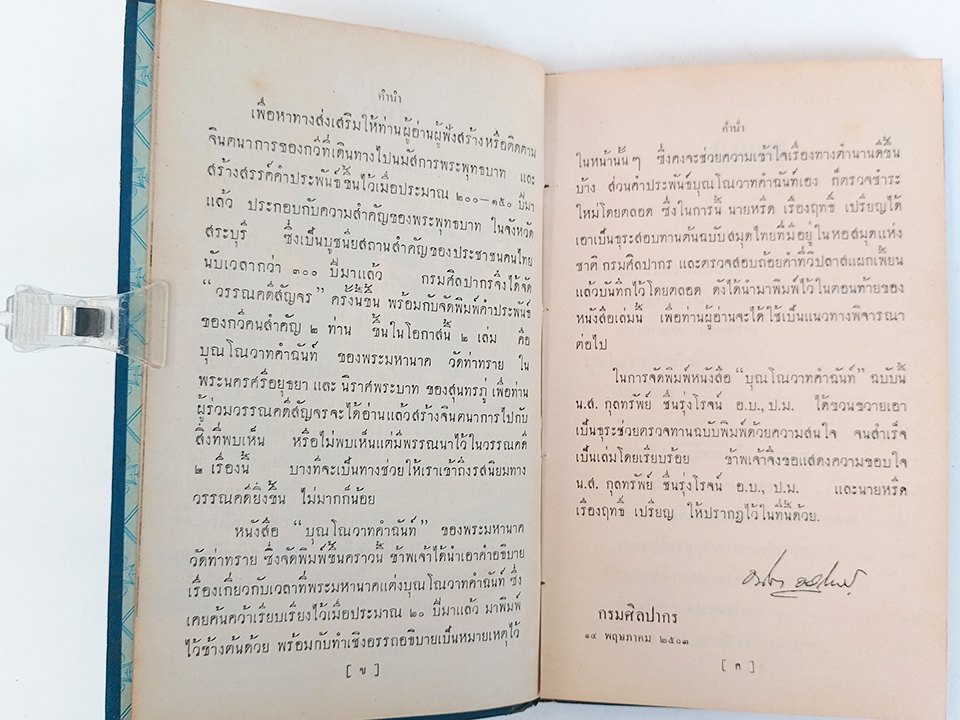 คำนำ
เพื่อหาทางส่งเสริมให้ท่านผู้อ่านผู้ฟังสร้างหรือคิดตาม
จินตนาการของกวีที่เดินทางไปนมัสการพระพุทธบาท และ
สร้างสรรค์คำประพันธ์ขึ้นไว้เมื่อประมาณ ๒๐๐—๑๕๐ ปีมา
แล้ว ประกอบกับความสำคัญของพระพุทธบาท ในจังหวัด
สระบุรี ซึ่งเป็นปูชนียสถานสำคัญของประชาชนคนไทย
นับเวลากว่า ๓๐๐ ปีมาแล้ว กรมศิลปากรจึงได้จัด
“วรรณคดีสัญจร” ครั้งนี้ขึ้น พร้อมกับจัดพิมพ์คำประพันธ์
ของกวีคนสำคัญ ๒ ท่าน ขึ้นในโอกาสนี้ ๒ เล่ม คือ
บุณโณวาทคำฉันท์ ของพระมหานาค วัดท่าทราย ใน
พระนครศรีอยุธยา และ นิราศพระบาท ของสุนทรภู่ เพื่อท่าน
ผู้ร่วมวรรณคดีสัญจรจะได้อ่านแล้วสร้างจินตนาการไปกับ
สิ่งที่พบเห็น หรือไม่พบเห็นแต่มีพรรณนาไว้ในวรรณคดี
๒ เรื่องนี้ บางทีจะเป็นทางช่วยให้เราเข้าถึงรสนิยมทาง
วรรณคดียิ่งขึ้น ไม่มากก็น้อย
หนังสือ “บุณโณวาทคำฉันท์” ของพระมหานาค
วัดท่าทราย ซึ่งจัดพิมพ์ขึ้นคราวนี้ ข้าพเจ้าได้นำเอาคำอธิบาย
เรื่องเกี่ยวกับเวลาที่พระมหานาคแต่งบุณโณวาทคำฉันท์ ซึ่ง
เคยค้นคว้าเรียบเรียงไว้เมื่อประมาณ ๒๐ ปีมาแล้ว มาพิมพ์
ไว้ข้างต้นด้วย พร้อมกับทำเชิงอรรถอธิบายเป็นหมายเหตุไว้
[ ข ]
คำนำ
ในหน้านั้น ๆ ซึ่งคงจะช่วยความเข้าใจเรื่องทางตำนานดีขึ้น
บ้าง ส่วนคำประพันธ์บุณโณวาทคำฉันท์เอง ก็ตรวจชำระ
ใหม่โดยตลอด ซึ่งในการนี้ นายหรีด เรืองฤทธิ์ เปรียญได้
เอาเป็นธุระสอบทานต้นฉบับสมุดไทยที่มีอยู่ในหอสมุดแห่ง
ชาติ กรมศิลปากร และตรวจสอบถ้อยคำที่วิปลาสแผกเพี้ยน
แล้วบันทึกไว้โดยตลอด ดังได้นำมาพิมพ์ไว้ในตอนท้ายของ
หนังสือเล่มนี้ เพื่อท่านผู้อ่านจะได้ใช้เป็นแนวทางพิจารณา
ต่อไป
ในการจัดพิมพ์หนังสือ “บุณโณวาทคำฉันท์” ฉบับนี้
น.ส. กุลทรัพย์ ชื่นรุ่งโรจน์ อ.บ., ป.ม. ได้ขวนขวายเอา
เป็นธุระช่วยตรวจทานฉบับพิมพ์ด้วยความสนใจ จนสำเร็จ
เป็นเล่มโดยเรียบร้อย ข้าพเจ้าจึงขอแสดงความขอบใจ
น.ส. กุลทรัพย์ ชื่นรุ่งโรจน์ อ.บ., ป.ม. และนายหรีด
เรืองฤทธิ์ เปรียญ ให้ปรากฏไว้ในที่นี้ด้วย.
กรมศิลปากร
๑๔ พฤษภาคม ๒๕๐๓
[ ค ]